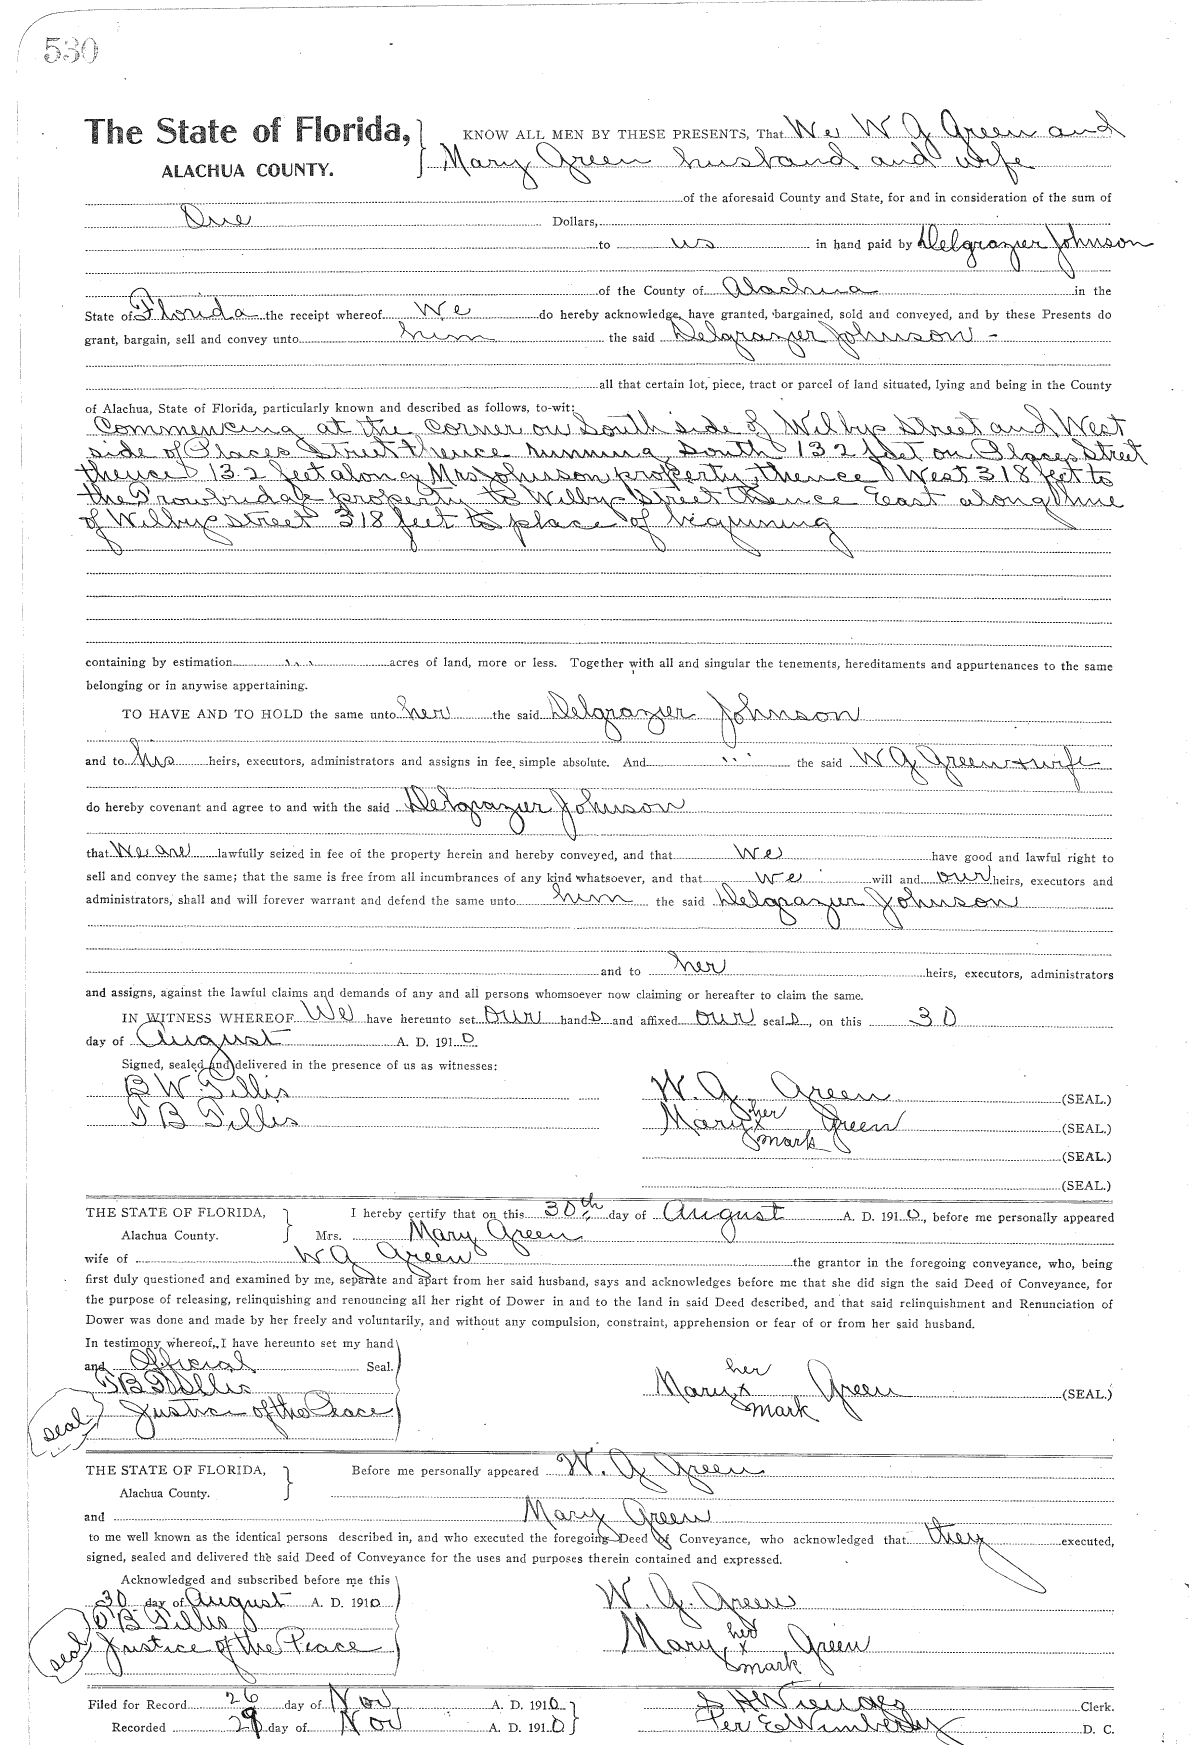 530
The State of Florida,
ALACHUA COUNTY.
KNOW ALL MEN BY THESE PRESENTS, That We W G Green and
Mary Green husband and wife
of the aforesaid County and State, for and in consideration of the sum of
One Dollars,
to us in hand paid by Delgrazier Johnson
of the County of Alachua in the
State of Florida the receipt whereof We do hereby acknowledge, have granted, bargained, sold and conveyed, and by these Presents do
grant, bargain, sell and convey unto him the said Delgrazier Johnson -
all that certain lot, piece, tract or parcel of land situated, lying and being in the County
of Alachua, State of Florida, particularly known and described as follows, to-wit:
Commencing at the corner on South side of Wilbys Street and West
side of Places Street thence running South 132 feet on Places Street
thence 132 feet along Mrs Johnson property, thence West 318 feet to
the property to Wilbys Street thence East along line
of Wilbys street 318 feet to place of beginning
containing by estimation acres of land, more or less. Together with all and singular the tenements, hereditaments and appurtenances to the same
belonging or in anywise appertaining.
TO HAVE AND TO HOLD the same unto her the said Delgrazier Johnson
and to his heirs, executors, administrators and assigns in fee simple absolute. And the said W G Green + wife
do hereby covenant and agree to and with the said Delgrazier Johnson
that We are lawfully seized in fee of the property herein and hereby conveyed, and that We have good and lawful right to
sell and convey the same; that the same is free from all incumbrances of any kind whatsoever, and that We will and our heirs, executors and
administrators, shall and will forever warrant and defend the same unto him the said Delgrazier Johnson
and to her heirs, executors, administrators
and assigns, against the lawful claims and demands of any and all persons whomsoever now claiming or hereafter to claim the same.
IN WITNESS WHEREOF We have hereunto set our hands and affixed our seals, on this 30
day of August A. D. 1910.
Signed, sealed and delivered in the presence of us as witnesses:
B W Tillis
T B Tillis
W. G. Green (SEAL.)
her
Mary x Green (SEAL.)
mark
(SEAL.)
(SEAL.)
THE STATE OF FLORIDA,
Alachua County.
I hereby certify that on this 30th day of August A. D. 1910, before me personally appeared
Mrs. Mary Green
wife of W G Green the grantor in the foregoing conveyance, who, being
first duly questioned and examined by me, separate and apart from her said husband, says and acknowledges before me that she did sign the said Deed of Conveyance, for
the purpose of releasing, relinquishing and renouncing all her right of Dower in and to the land in said Deed described, and that said relinquishment and Renunciation of
Dower was done and made by her freely and voluntarily, and without any compulsion, constraint, apprehension or fear of or from her said husband.
In testimony whereof, I have hereunto set my hand
and Official Seal.
T B Tillis
seal
Justice of the Peace
her
Mary x Green (SEAL.)
mark
THE STATE OF FLORIDA,
Alachua County.
Before me personally appeared W. G Green
and Mary Green
to me well known as the identical persons described in, and who executed the foregoing Deed of Conveyance, who acknowledged that they executed,
signed, sealed and delivered the said Deed of Conveyance for the uses and purposes therein contained and expressed.
Acknowledged and subscribed before me this
30 day of August A. D. 1910
T B Tillis
seal
Justice of the Peace
W. G. Green
her
Mary x Green
mark
Filed for Record 26 day of Nov A. D. 1910
Recorded 29 day of Nov A. D. 1910
S H Wienges Clerk.
Per E Wimberly D. C.